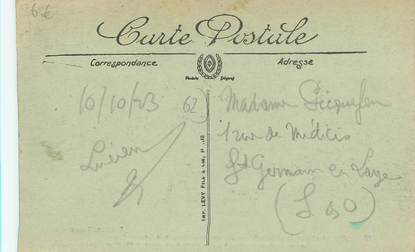 6€
Carte Postale
Correspondance
Adresse
Modèle Déposé
10/10/23
62
Madame
1 rue de Médicis
St Germain en Laye
(S & O)
Lucien
Imp. LEVY Fils & Cie, P